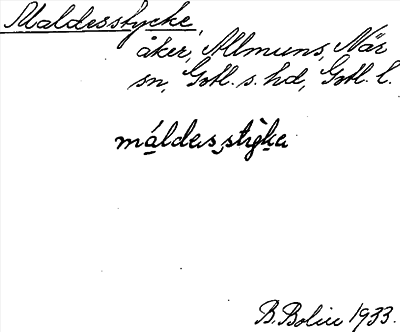 Maldesstycke,
åker, Allmuns, När
sn, Gotl. s. hd, Gotl. l.
máldes,stỳka
B. Bolin 1933.